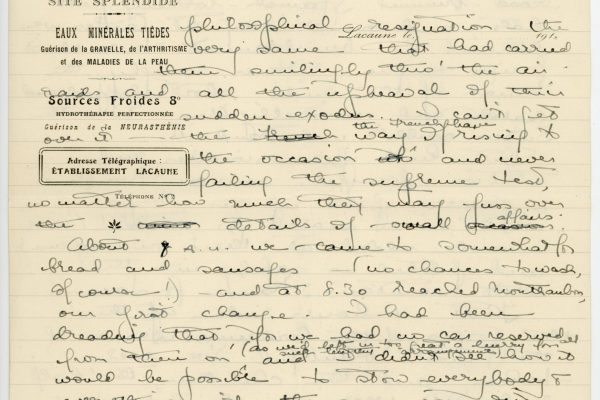 SITE SPLENDIDE
EAUX MINÉRALES TIÈDES
Guérison de la GRAVELLE, de l'ARTHRITISME
et des MALADIES DE LA PEAU
Sources Froides 8°
HYDROTHÉRAPIE PERFECTIONNÉE
Guérison de la NEURASTHÉNIE
Adresse Télégraphique :
ÉTABLISSEMENT LACAUNE
TÉLÉPHONE Nº
Lacaune le 191
philosophical resignation the
very same that had carried
them smilingly thro' the air
raids and all the upheaval of their
sudden exodus. I can't get
over it — the french have the way of rising to
the occasion and never
failing the supreme test,
no matter how much they may fuss over
the details of small affairs.
About 7 A.M. we came to somewhat for
bread and sausages — (no chances to wash,
of course!) — and at 8.30 reached Montauban,
our first change. I had been
dreading that for we had no car reserved
from then on (as we'd left in too great a hurry for all
such lengthy arrangements) and didn't see how it
would be possible to stow everybody &